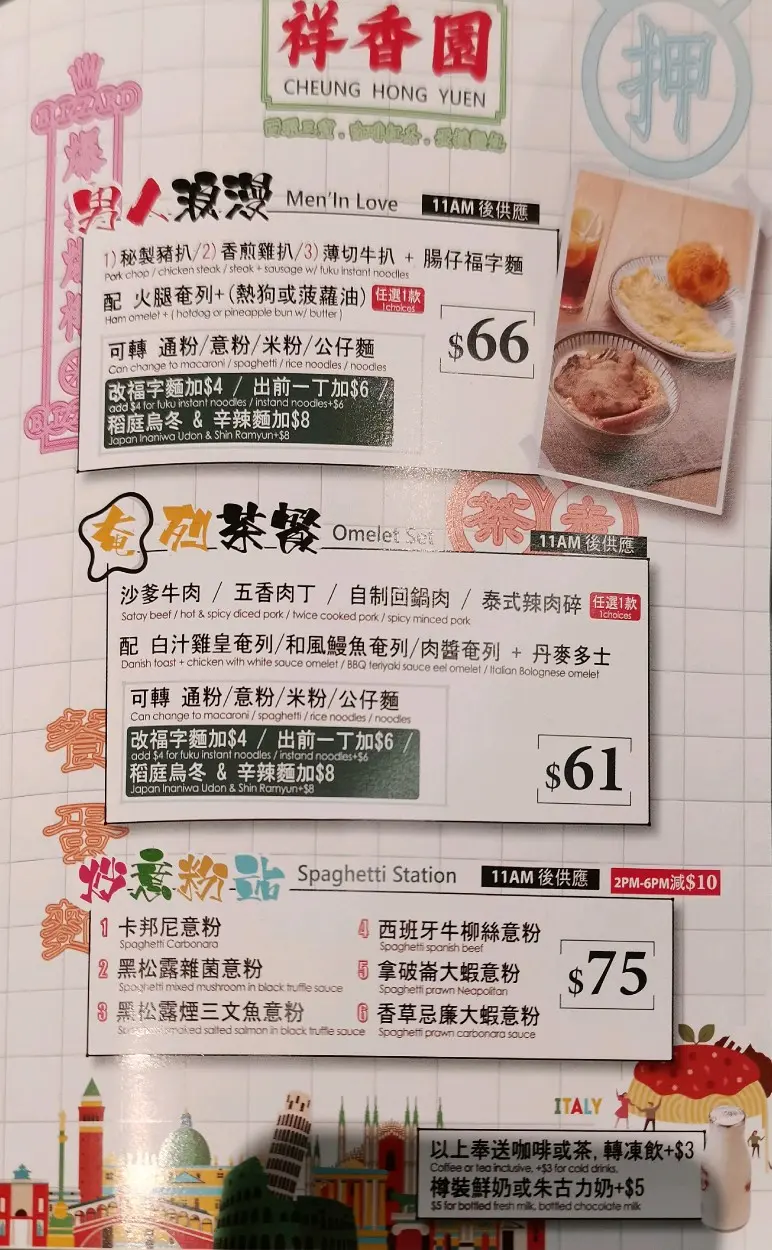 祥香園
CHEUNG HONG YUEN
押
男人浪漫 Men'In Love 11AM 後供應
1) 秘製豬扒/2) 香煎雞扒/3) 薄切牛扒 + 腸仔福字麵
Pork chop / chicken steak / steak + sausage w/ fuku instant noodles
配 火腿奄列+(熱狗或菠蘿油) 任選1款
1choices
Ham omelet + ( hotdog or pineapple bun w/ butter )
$66
可轉 通粉/意粉/米粉/公仔麵
Can change to macaroni / spaghetti / rice noodles / noodles
改福字麵加$4 / 出前一丁加$6 /
add $4 for fuku instant noodles / instand noodles+$6
稻庭烏冬 & 辛辣麵加$8
Japan Inaniwa Udon & Shin Ramyun+$8
奄列茶餐 Omelet Set 11AM 後供應
沙爹牛肉 / 五香肉丁 / 自制回鍋肉 / 泰式辣肉碎 任選1款
1choices
Satay beef / hot & spicy diced pork / twice cooked pork / spicy minced pork
配 白汁雞皇奄列/和風鰻魚奄列/肉醬奄列 + 丹麥多士
Danish toast + chicken with white sauce omelet / BBQ teriyaki sauce eel omelet / Italian Bolognese omelet
可轉 通粉/意粉/米粉/公仔麵
Can change to macaroni / spaghetti / rice noodles / noodles
改福字麵加$4 / 出前一丁加$6 /
add $4 for fuku instant noodles / instand noodles+$6
稻庭烏冬 & 辛辣麵加$8
Japan Inaniwa Udon & Shin Ramyun+$8
$61
餐蛋麵
炒意粉站 Spaghetti Station 11AM 後供應 2PM-6PM減$10
1 卡邦尼意粉
Spaghetti Carbonara
2 黑松露雜菌意粉
Spaghetti mixed mushroom in black truffle sauce
3 黑松露煙三文魚意粉
smoked salted salmon in black truffle sauce
4 西班牙牛柳絲意粉
Spaghetti spanish beef
5 拿破崙大蝦意粉
Spaghetti prawn Neapolitan
6 香草忌廉大蝦意粉
Spaghetti prawn carbonara sauce
$75
ITALY
以上奉送咖啡或茶, 轉凍飲+$3
Coffee or tea inclusive, +$3 for cold drinks.
樽裝鮮奶或朱古力奶+$5
$5 for bottled fresh milk, bottled chocolate milk